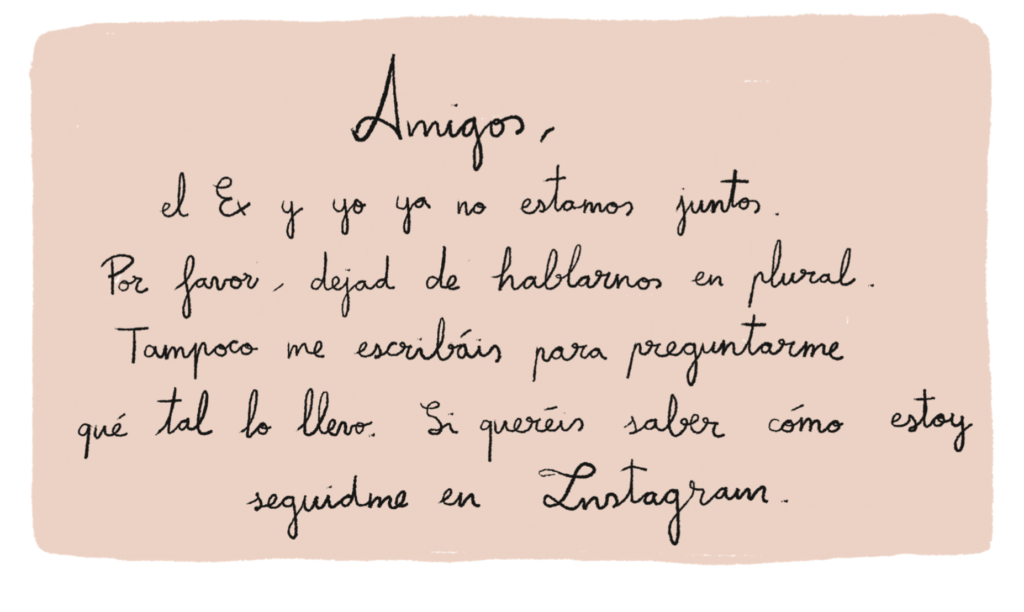 Amigos,
el Ex y yo ya no estamos juntos.
Por favor, dejad de hablarnos en plural.
Tampoco me escribáis para preguntarme
qué tal lo llevo. Si queréis saber cómo estoy
seguidme en Instagram.